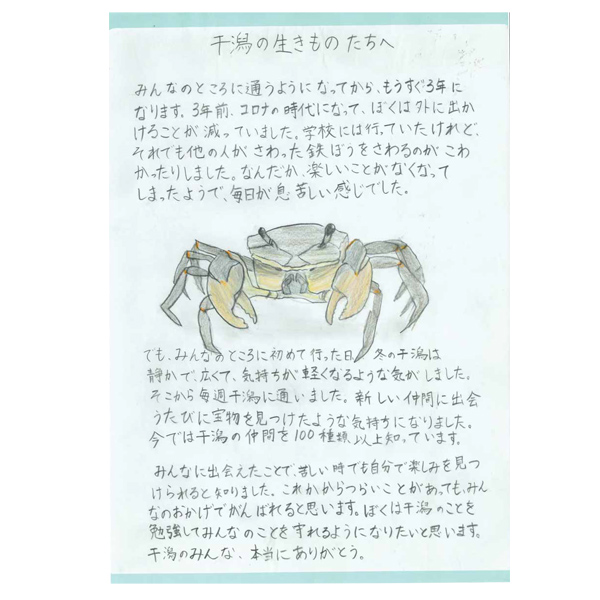 干潟の生きものたちへ
みんなのところに通うようになってから、もうすぐ3年に
なります。3年前、コロナの時代になって、ぼくは外に出か
けることが減っていました。学校には行っていたけれど、
それでも他の人がさわった鉄ぼうをさわるのがこわ
かったりしました。なんだか、楽しいことがなくなって
しまったようで、毎日が息苦しい感じでした。
でも、みんなのところに初めて行った日、冬の干潟は
静かで、広くて、気持ちが軽くなるような気がしました。
そこから毎週干潟に通いました。新しい仲間に出会
うたびに宝物を見つけたような気持ちになりました。
今では干潟の仲間を100種類以上知っています。
みんなに出会えたことで、苦しい時でも自分で楽しみを見つ
けられると知りました。これからつらいことがあっても、みん
なのおかげでがんばれると思います。ぼくは干潟のことを
勉強してみんなのことを守れるようになりたいと思います。
干潟のみんな、本当にありがとう。